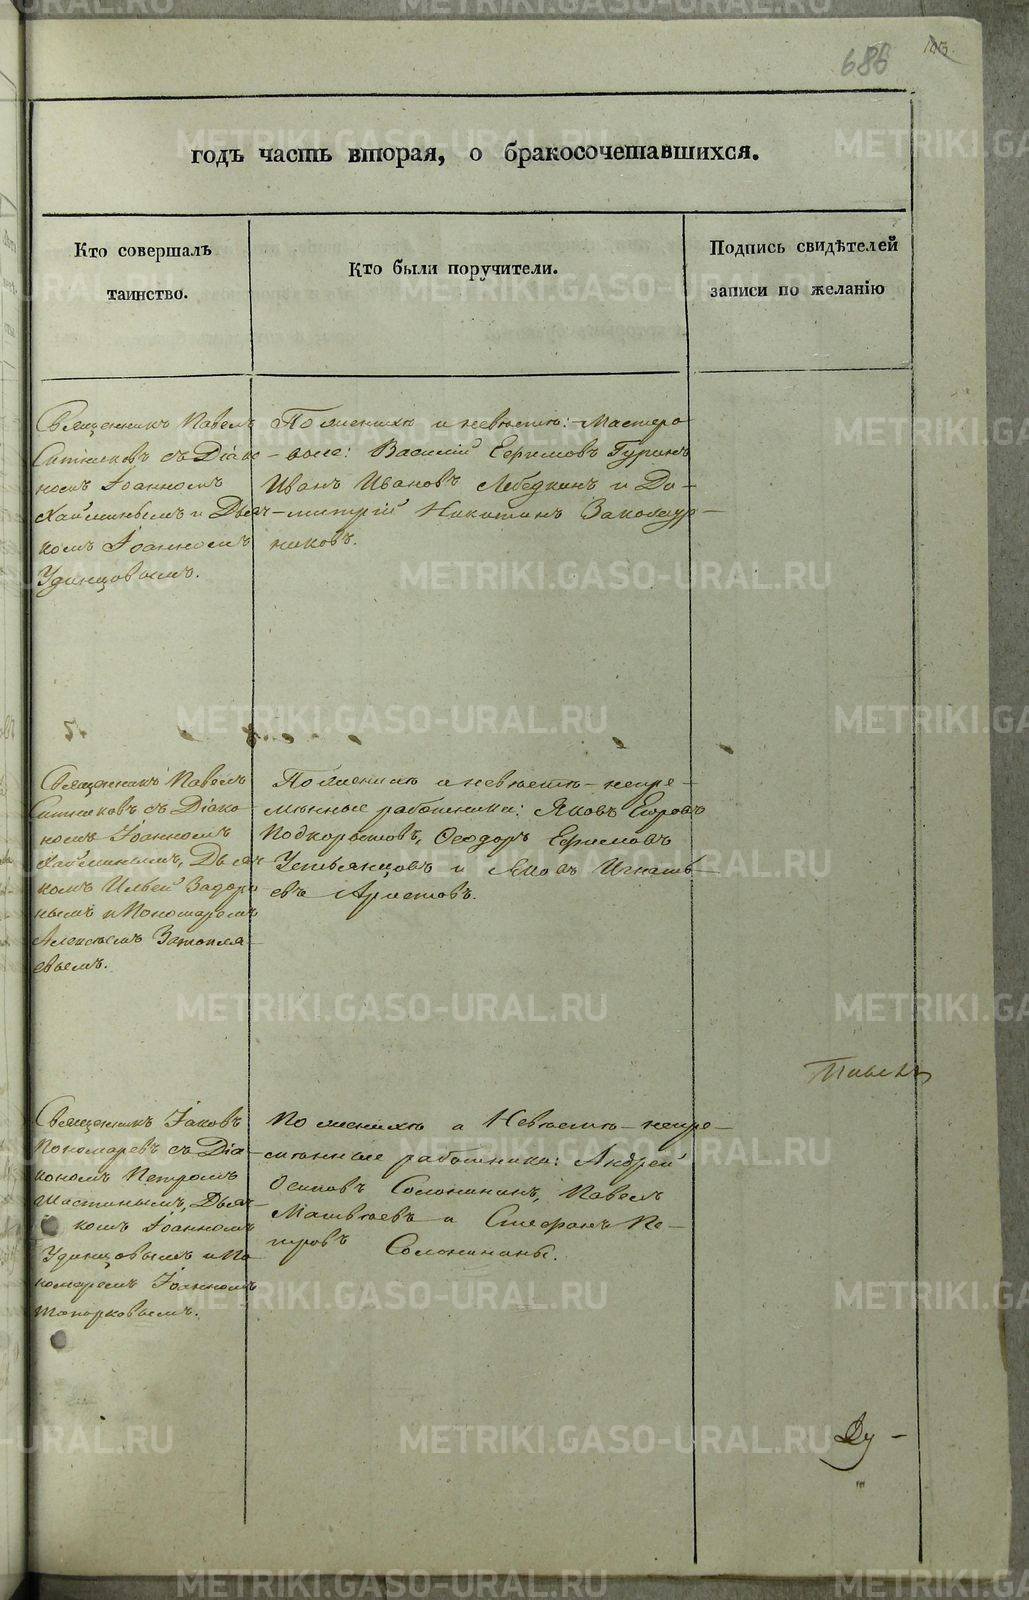 686
103.
годъ часть вторая, о бракосочетавшихся.
Кто совершалъ
таинство.
Кто были поручители.
Подпись свидѣтелей
записи по желанію
Священникъ Павелъ
Ситниковъ съ Діако-
номъ Іоанномъ
Хайминымъ и Дьяч-
комъ Іоанномъ
Удинцовымъ.
По женихѣ и невѣстѣ: Мастеро-
-вые: Василій Ефимовъ Гуринъ
Иванъ Ивановъ Лебедкинъ и Ди-
-митрій Никитинъ Закожур-
никовъ.
Священникъ Павелъ
Ситниковъ съ Діако-
номъ Іоанномъ
Хайминымъ, Дьяч-
комъ Ильей Задор-
нымъ и Пономаремъ
Алексѣемъ
По женихѣ и невѣстѣ непре-
мѣнные работники: Яковъ Егоровъ
Подкорытовъ, Ѳеодоръ Ефимовъ
Устьянцовъ и Яковъ Игнать-
евъ Аристовъ.
Священникъ Іаковъ
Пономаревъ съ Діа-
кономъ Петромъ
Шастинымъ, Дьяч-
комъ Іоанномъ
Удинцовымъ и По-
номаремъ Іоанномъ
Топорковымъ.
По женихѣ и Невѣстѣ непре-
мѣнные работники: Андрей
Осиповъ Солонинин, Павелъ
Матвѣевъ и Стефанъ Пе-
тровъ Солонинины.
Павелъ
Ду-
METRIKI.GASO-URAL.RU